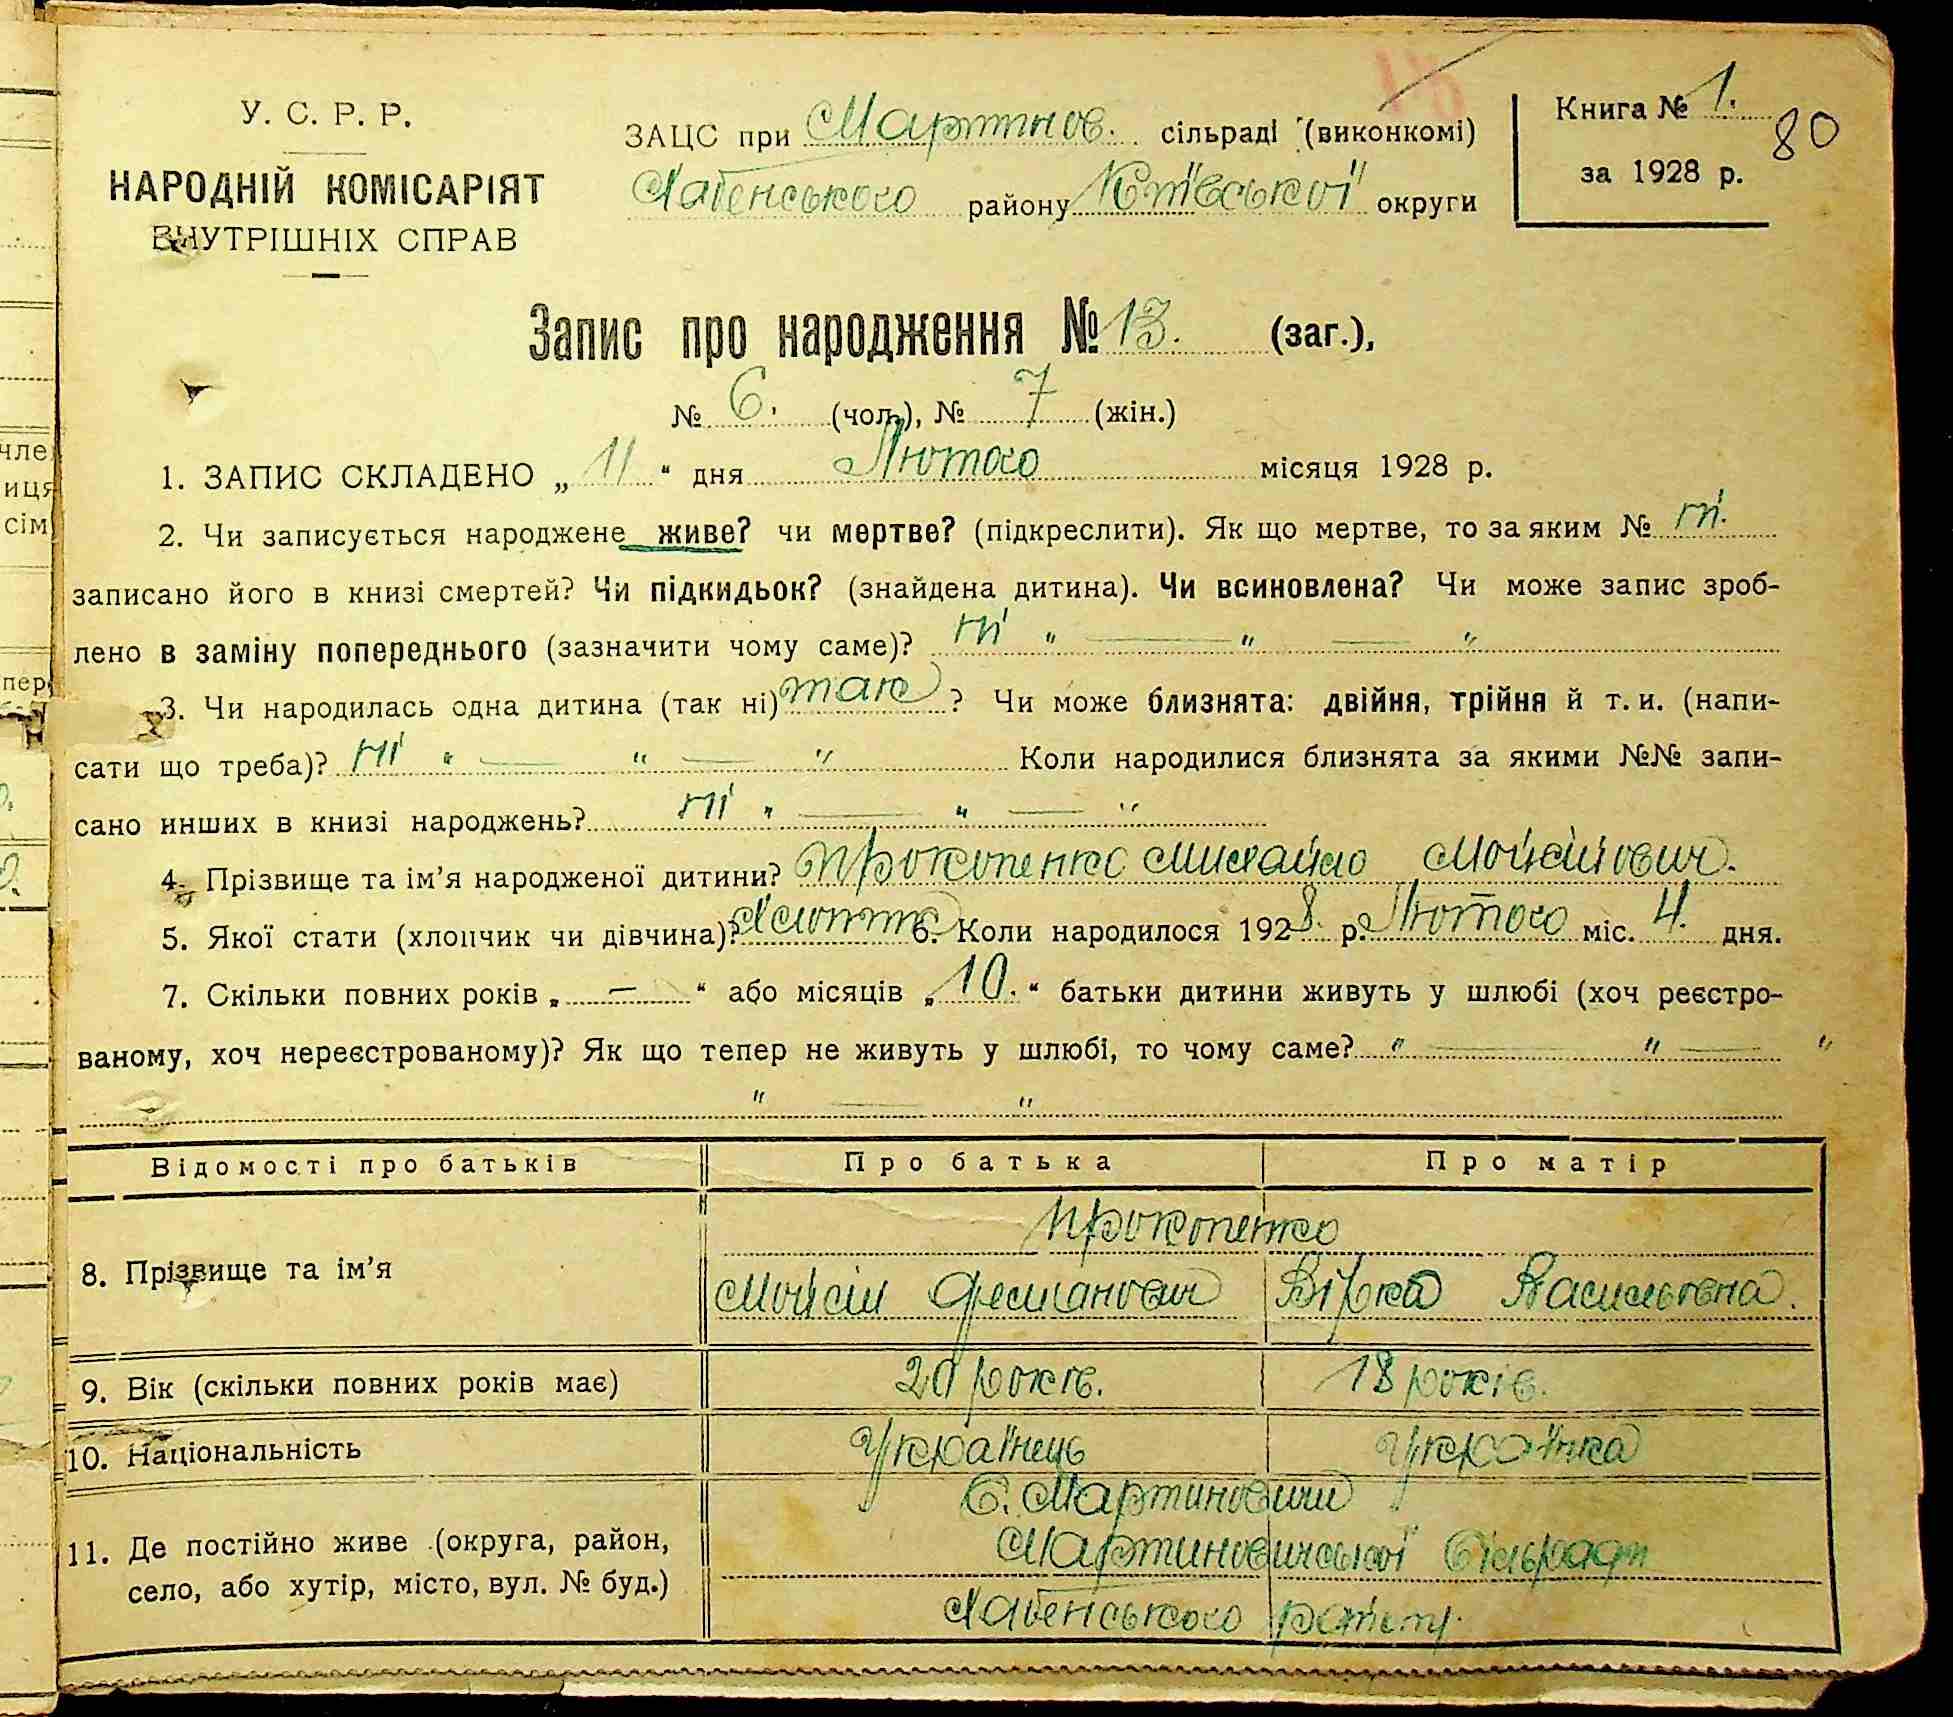 У. С. Р. Р.
НАРОДНІЙ КОМІСАРІЯТ
ВНУТРІШНІХ СПРАВ
ЗАЦС при Мартинов. сільраді (виконкомі)
Хабенського району Київської округи
Книга № 1.
за 1928 р.
80
Запис про народження № 13. (заг.),
№ 6. (чол.), № 7 (жін.)
1. ЗАПИС СКЛАДЕНО „ 11 “ дня Лютого місяця 1928 р.
2. Чи записується народжене живе? чи мертве? (підкреслити). Як що мертве, то за яким № ні.
записано його в книзі смертей? Чи підкидьок? (знайдена дитина). Чи всиновлена? Чи може запис зроб-
лено в заміну попереднього (зазначити чому саме)? ні " — " — "
3. Чи народилась одна дитина (так ні) так ? Чи може близнята: двійня, трійня й т. и. (напи-
сати що треба)? ні " — " — " Коли народилися близнята за якими №№ запи-
сано инших в книзі народжень? ні " — " — "
4. Прізвище та ім’я народженої дитини? Прокопенко Михайло Мойсійович.
5. Якої стати (хлопчик чи дівчина)? 6. Коли народилося 1928. р. Лютого міс. 4. дня.
7. Скільки повних років „ — “ або місяців „ 10. “ батьки дитини живуть у шлюбі (хоч реєстро-
ваному, хоч нереєстрованому)? Як що тепер не живуть у шлюбі, то чому саме? " — " — "
" — "
Відомості про батьків Про батька Про матір
Прокопенко
8. Прізвище та ім’я Мойсій Васильовна.
9. Вік (скільки повних років має) 20 років. 18 років.
10. Національність Українець Українка
С. Мартиновичи
11. Де постійно живе (округа, район, Мартиновичської Сільради
село, або хутір, місто, вул. № буд.)
Хабенського району.